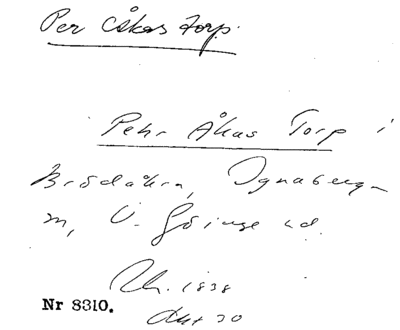 Per Åkas torp.
Pehr Åkas Torp i
Brödåkra, Ignaberga
sn, V. Göinge hd.
Uh. 1838
Akt 20
Nr 8310.